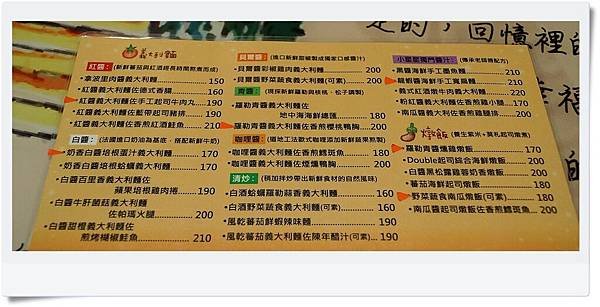 義大利麵
紅醬：(新鮮蕃茄與紅酒經長時間熬煮而成)
拿波里肉醬義大利麵 150
紅醬義大利麵佐德式香腸 160
紅醬義大利麵佐手工起司牛肉丸 190
紅醬義大利麵佐藍帶起司豬排 190
紅醬義大利麵佐香煎紅酒鮭魚 210
白醬：(法國進口奶油為基底，搭配新鮮牛奶)
奶香白醬培根蛋汁義大利麵 170
奶香白醬培根蛤蠣義大利麵 170
白醬百里香義大利麵佐
蘋果培根雞肉捲 190
白醬牛肝菌菇義大利麵
佐帕瑪火腿 200
白醬甜橙義大利麵佐
煎烤檸檬鮭魚 210
貝爾醬：
貝爾醬彩椒雞肉義大利麵 200
貝爾醬野菜蔬食義大利麵(可素) 200
青醬：(現採新鮮羅勒與核桃、松子調製)
羅勒青醬義大利麵佐
地中海海鮮總匯 180
羅勒青醬義大利麵佐香煎櫻桃鴨胸 200
咖哩醬：(道地工法歐式咖哩添加新鮮蔬果熬製)
咖哩醬義大利麵佐香煎鯛魚斑魚 180
咖哩醬義大利麵佐煙燻鴨胸 200
清炒：(稍加拌炒帶出新鮮食材的自然風味)
白酒蛤蠣羅勒蒜香義大利麵 160
白酒野菜蔬食義大利麵(可素) 160
風乾蕃茄鮮蝦辣味麵 190
風乾蕃茄義大利麵佐陳年醋汁(可素) 190
小星星獨門醬汁：(傳承老師傅配方)
黑醬海鮮手工墨魚麵 200
蘿蝦醬海鮮手工寬扁麵 200
義式紅酒燉牛肉義大利麵 220
粉紅醬義大利麵佐香煎雞小腿 170
南瓜醬義大利麵佐香煎雞腿排 200
燉飯 (養生紫米+莫札起司燉煮)
羅勒青醬燻雞燉飯 170
Double起司綜合海鮮燉飯 200
白醬黑松露雞蓉奶香燉飯 200
蕃茄海鮮起司燉飯 180
野菜蔬食南瓜燉飯(可素) 180
南瓜醬起司燉飯佐香煎鱈斑魚 200
走的，回憶裡的
幸福